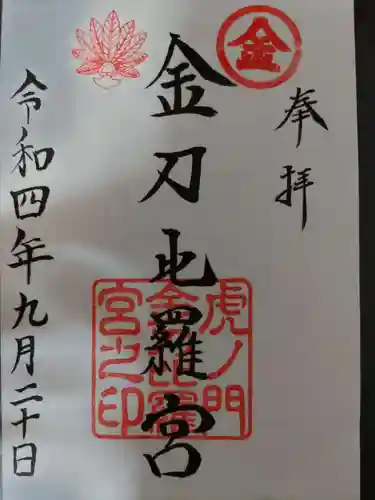 奉拝
金
金刀比羅宮
虎ノ門
金刀比羅
宮之印
令和四年九月二十日